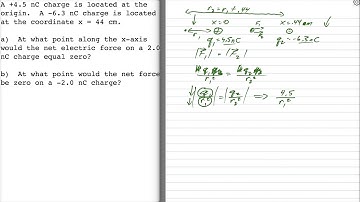 A +4.5 nC charge is located at the
origin.  A -6.3 nC charge is located
at the coordinate x = 44 cm.
a)  At what point along the x-axis
would the net electric force on a 2.0
nC charge equal zero?
b)  At what point would the net force
be zero on a -2.0 nC charge?
r₂ = r₁ + .44
x=0
x=.44m
r₁
r₂
q₁=4.5nC
q₂=-6.3nC
|F₁| = |F₂|
kq₁q₃/r₁² = kq₂q₃/r₂²
|q₁/r₁²| = |q₂/r₂²| ⟹ 4.5/r₁²